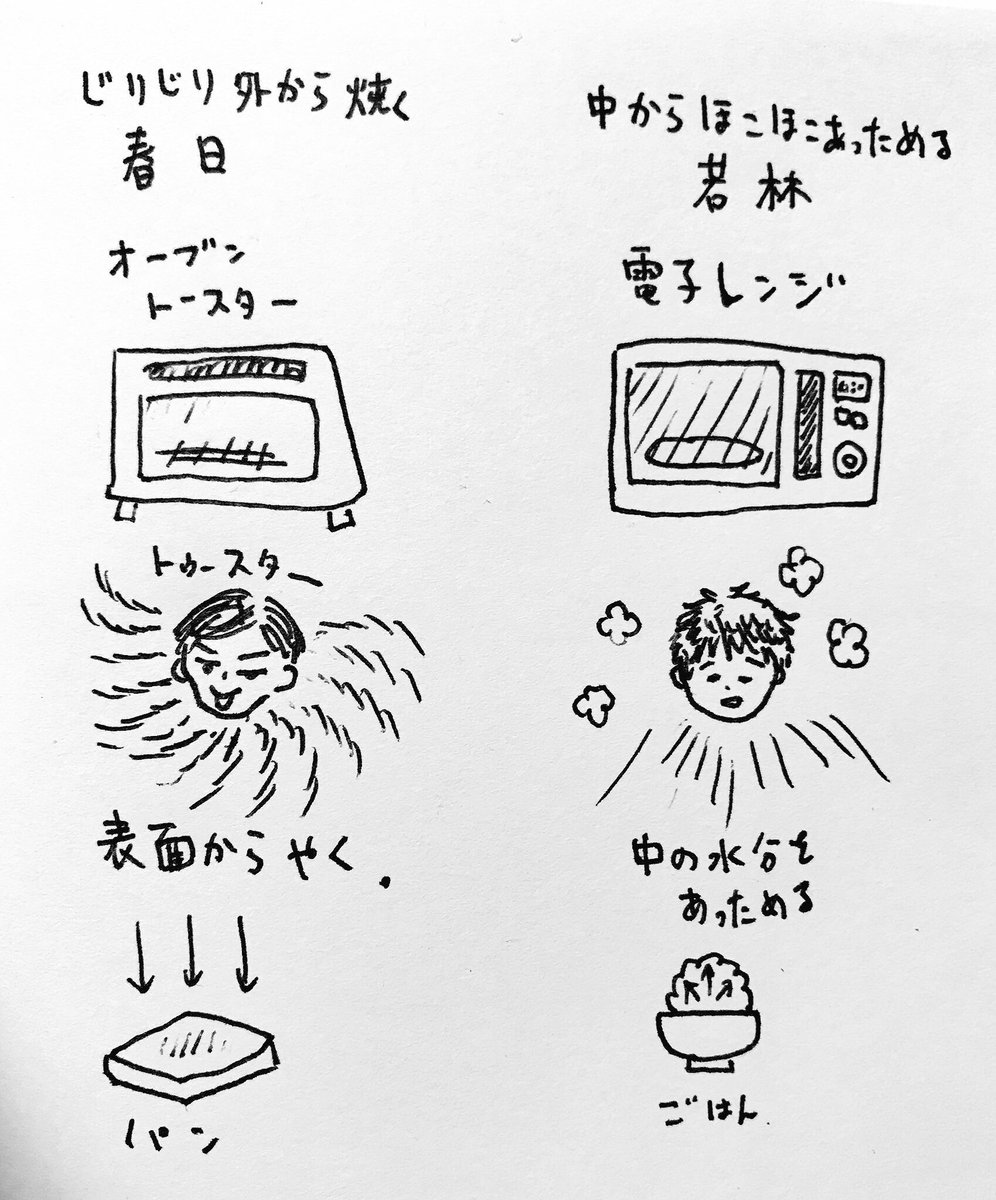 じりじり外から焼く
春日
オーブン
トースター
トゥースター
表面からやく.
パン
中からほこほこあっためる
若林
電子レンジ
中の水分を
あっためる
ごはん